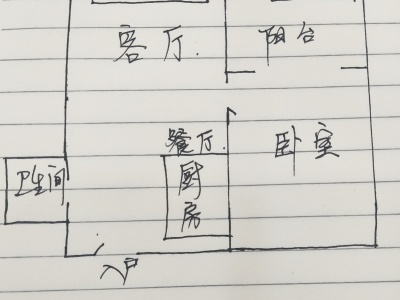 客厅.
阳台
餐厅.
卧室
卫生间
厨房
入户